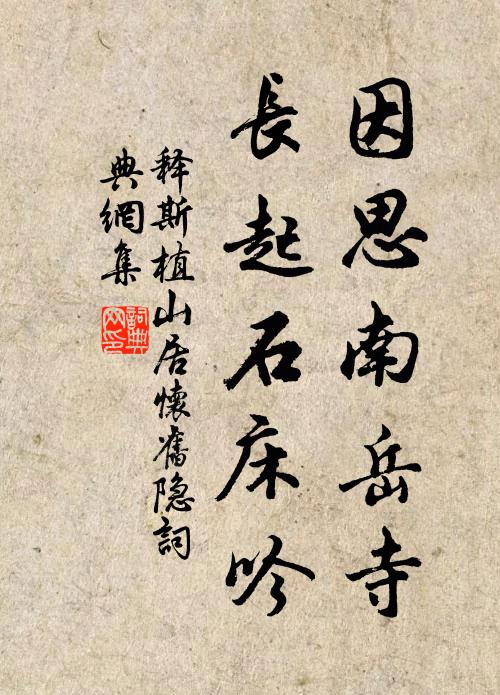 因思南岳寺
長起石床吟
释斯植山居懷舊隐詞
典網集
詞典
网印